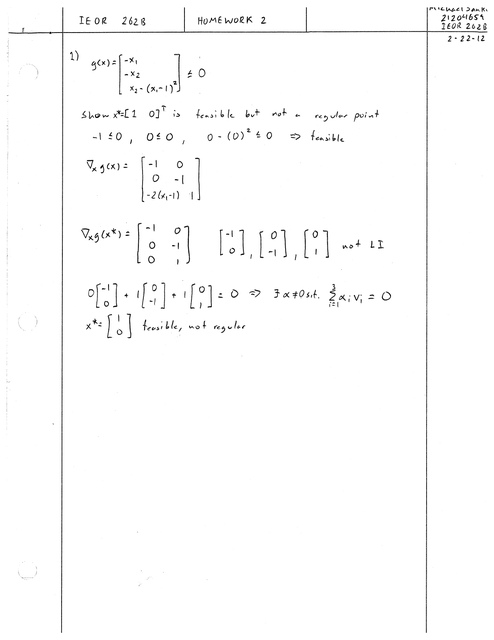 IEOR 262B
HOMEWORK 2
Michael
21204659
IEOR 262B
2-22-12
1) g(x) = [-x₁; -x₂; x₂-(x₁-1)²] ≤ 0
Show x*=[1 0]ᵀ is feasible but not a regular point
-1 ≤ 0, 0 ≤ 0, 0-(0)² ≤ 0 ⇒ feasible
∇ₓg(x) = [-1 0; 0 -1; -2(x₁-1) 1]
∇ₓg(x*) = [-1 0; 0 -1; 0 1] [-1; 0], [0; -1], [0; 1] not LI
0[-1; 0] + 1[0; -1] + 1[0; 1] = 0 ⇒ ∃ α≠0 s.t. ∑ᵢ₌₁³ αᵢvᵢ = 0
x* = [1; 0] feasible, not regular